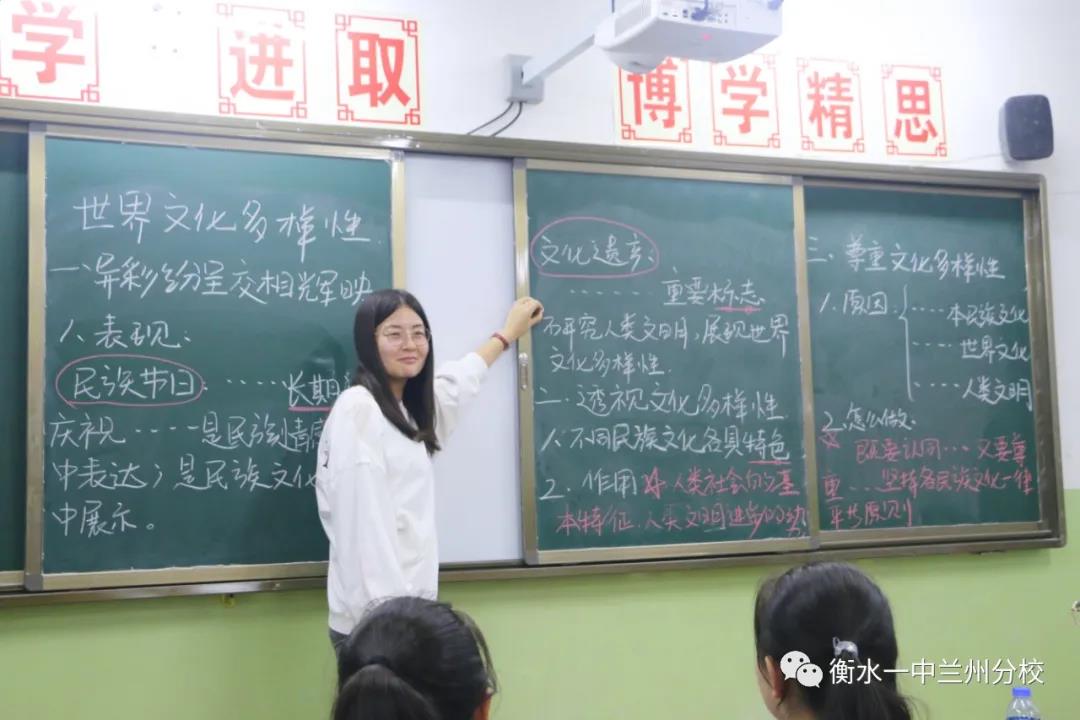 学 进取
博学精思
世界文化多样性
一、异彩纷呈交相辉映
1、表现:
民族节日:……长期
庆祝……是民族情感
中表达;是民族文化
中展示。
文化遗产:
……… 重要标志
不研究人类文明,展现世界
文化多样性.
二、透视文化多样性
1、不同民族文化各具特色
2、作用 人类社会的文基
本特征,人类文明进步的动
三、尊重文化多样性
1、原因:
……本民族文化
……世界文化
……人类文明
2、怎么做:
既要认同…又要尊
重…坚持各民族文化一律
平等原则
衡水一中兰州分校